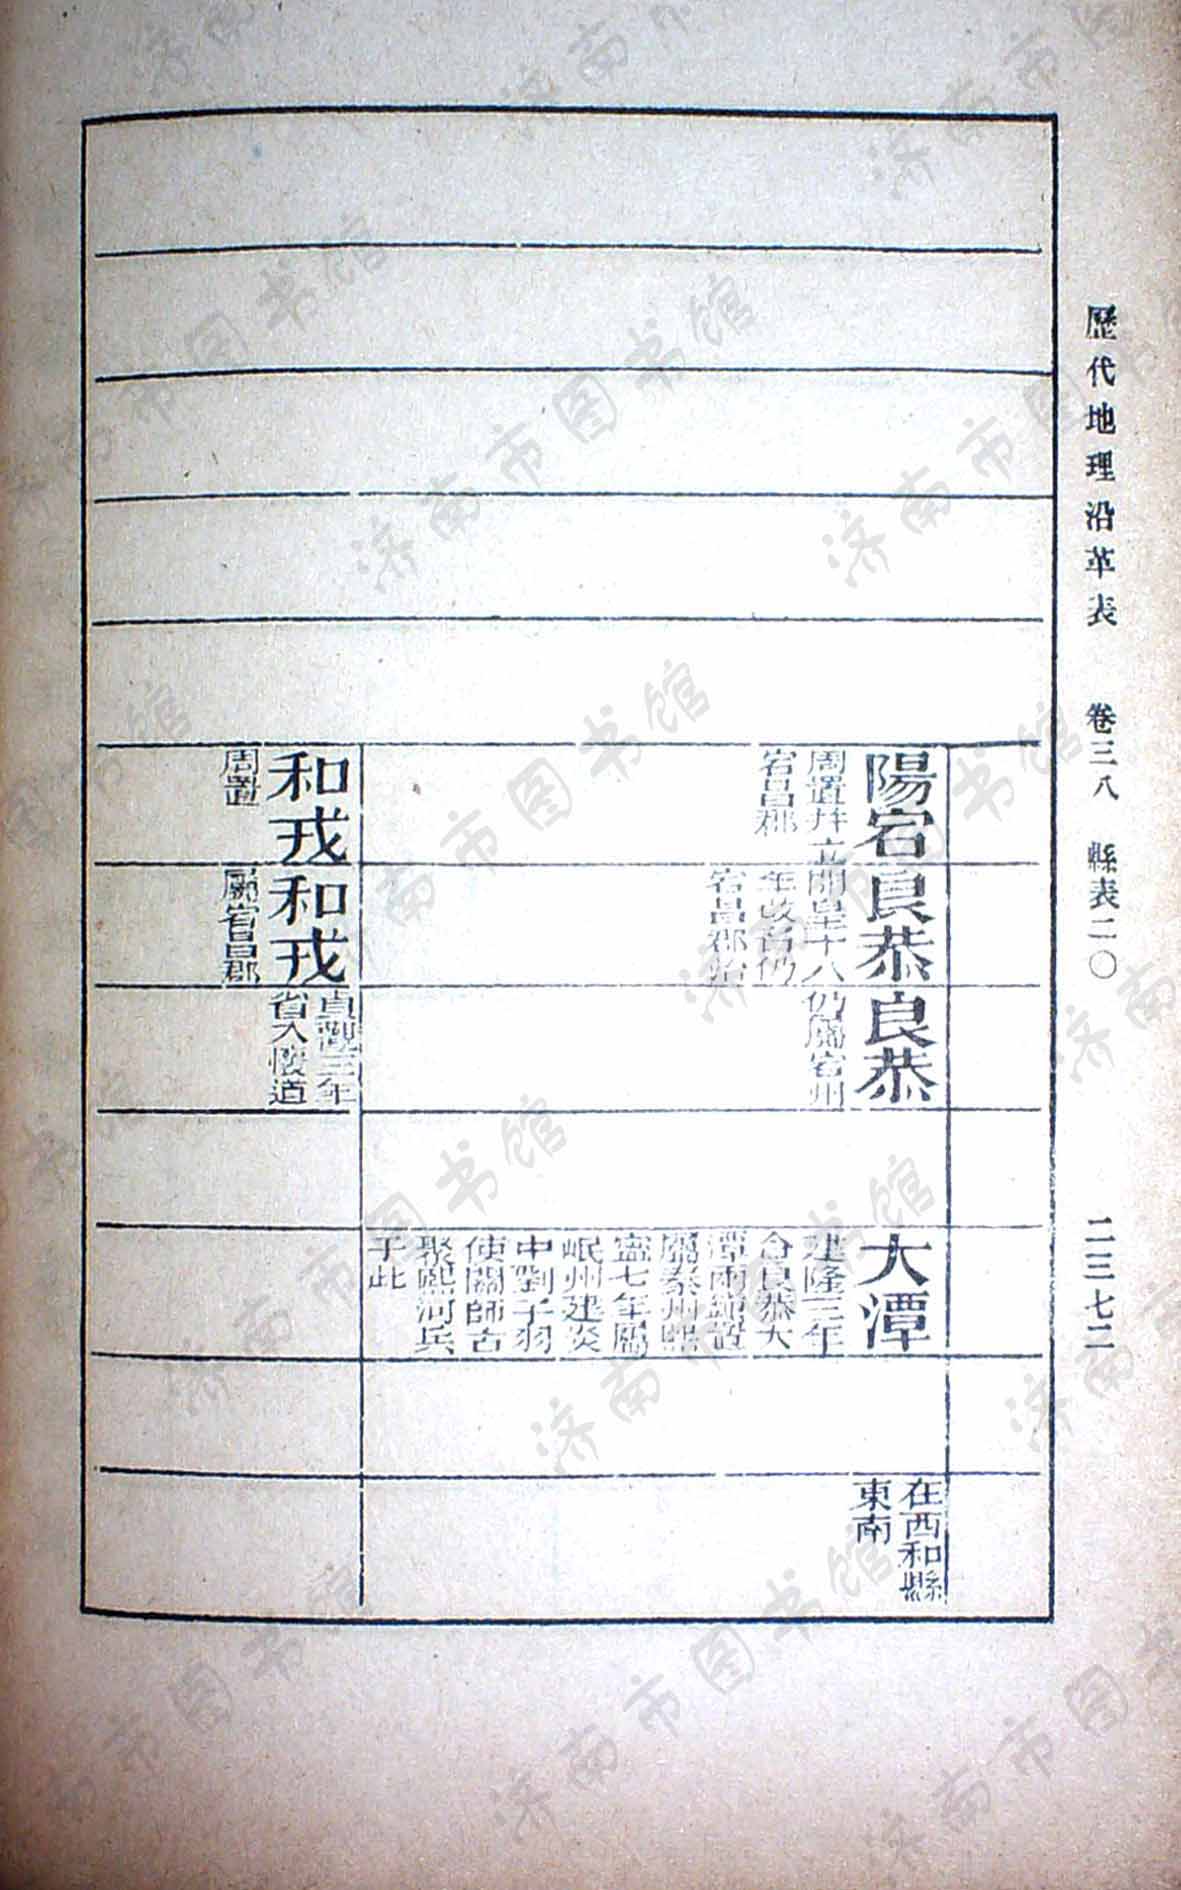 歷代地理沿革表 卷三八 縣表二〇 二三七二
陽宕
周置幷立
宕昌郡
良恭
開皇十八
年改名仍
宕昌郡治
良恭
仍屬宕州
大潭
建隆三年
合良恭大
潭兩鎮設
屬秦州熙
寧七年屬
岷州建炎
中劉子羽
使關師古
聚熙河兵
于此
在西和縣
東南
和戎
周置
和戎
屬宕昌郡
貞觀三年
省入懷道
济南市图书馆